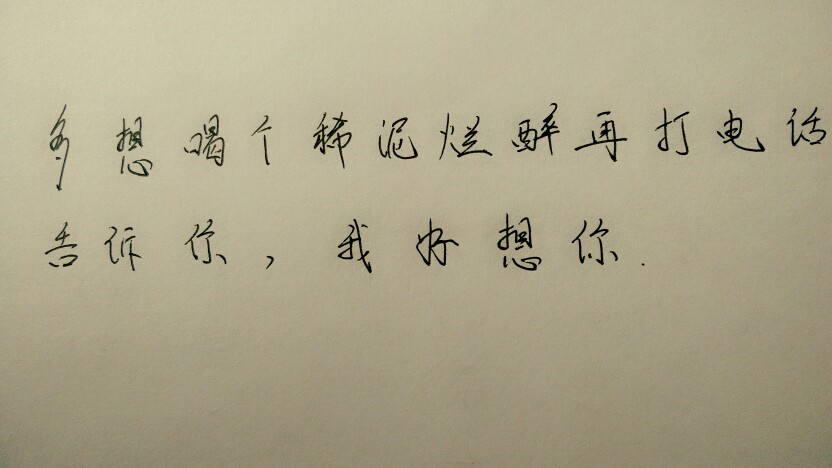 多想喝个稀泥烂醉再打电话
告诉你，我好想你.